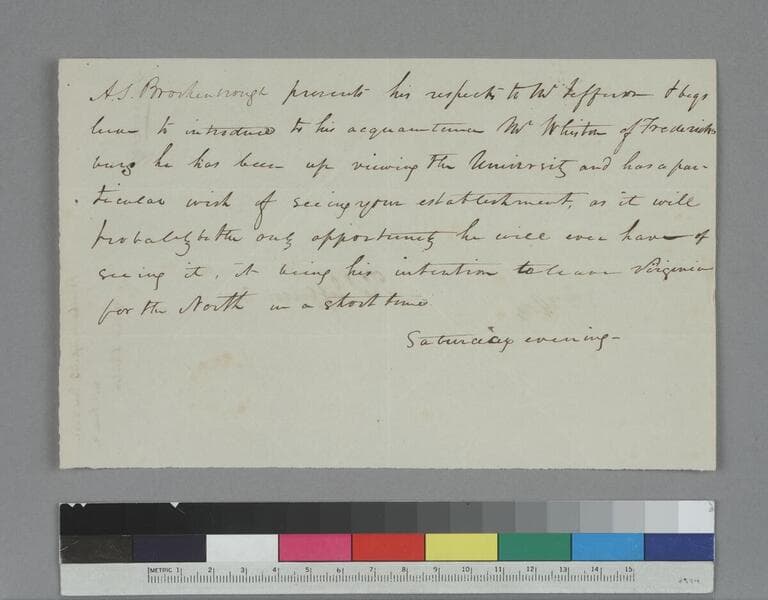 A. S. Brockenbrough presents his respects to Mr Jefferson & begs
leave to introduce to his acquaintance Mr Whiston of Fredericks
burg he has been up viewing the University and has a par-
ticular wish of seeing your establishment, as it will
probably be the only opportunity he will ever have of
seeing it, it being his intention to leave Virginia
for the North in a short time
Saturday evening-
METRIC 1 2 3 4 5 6 7 8 9 10 11 12 13 14 15